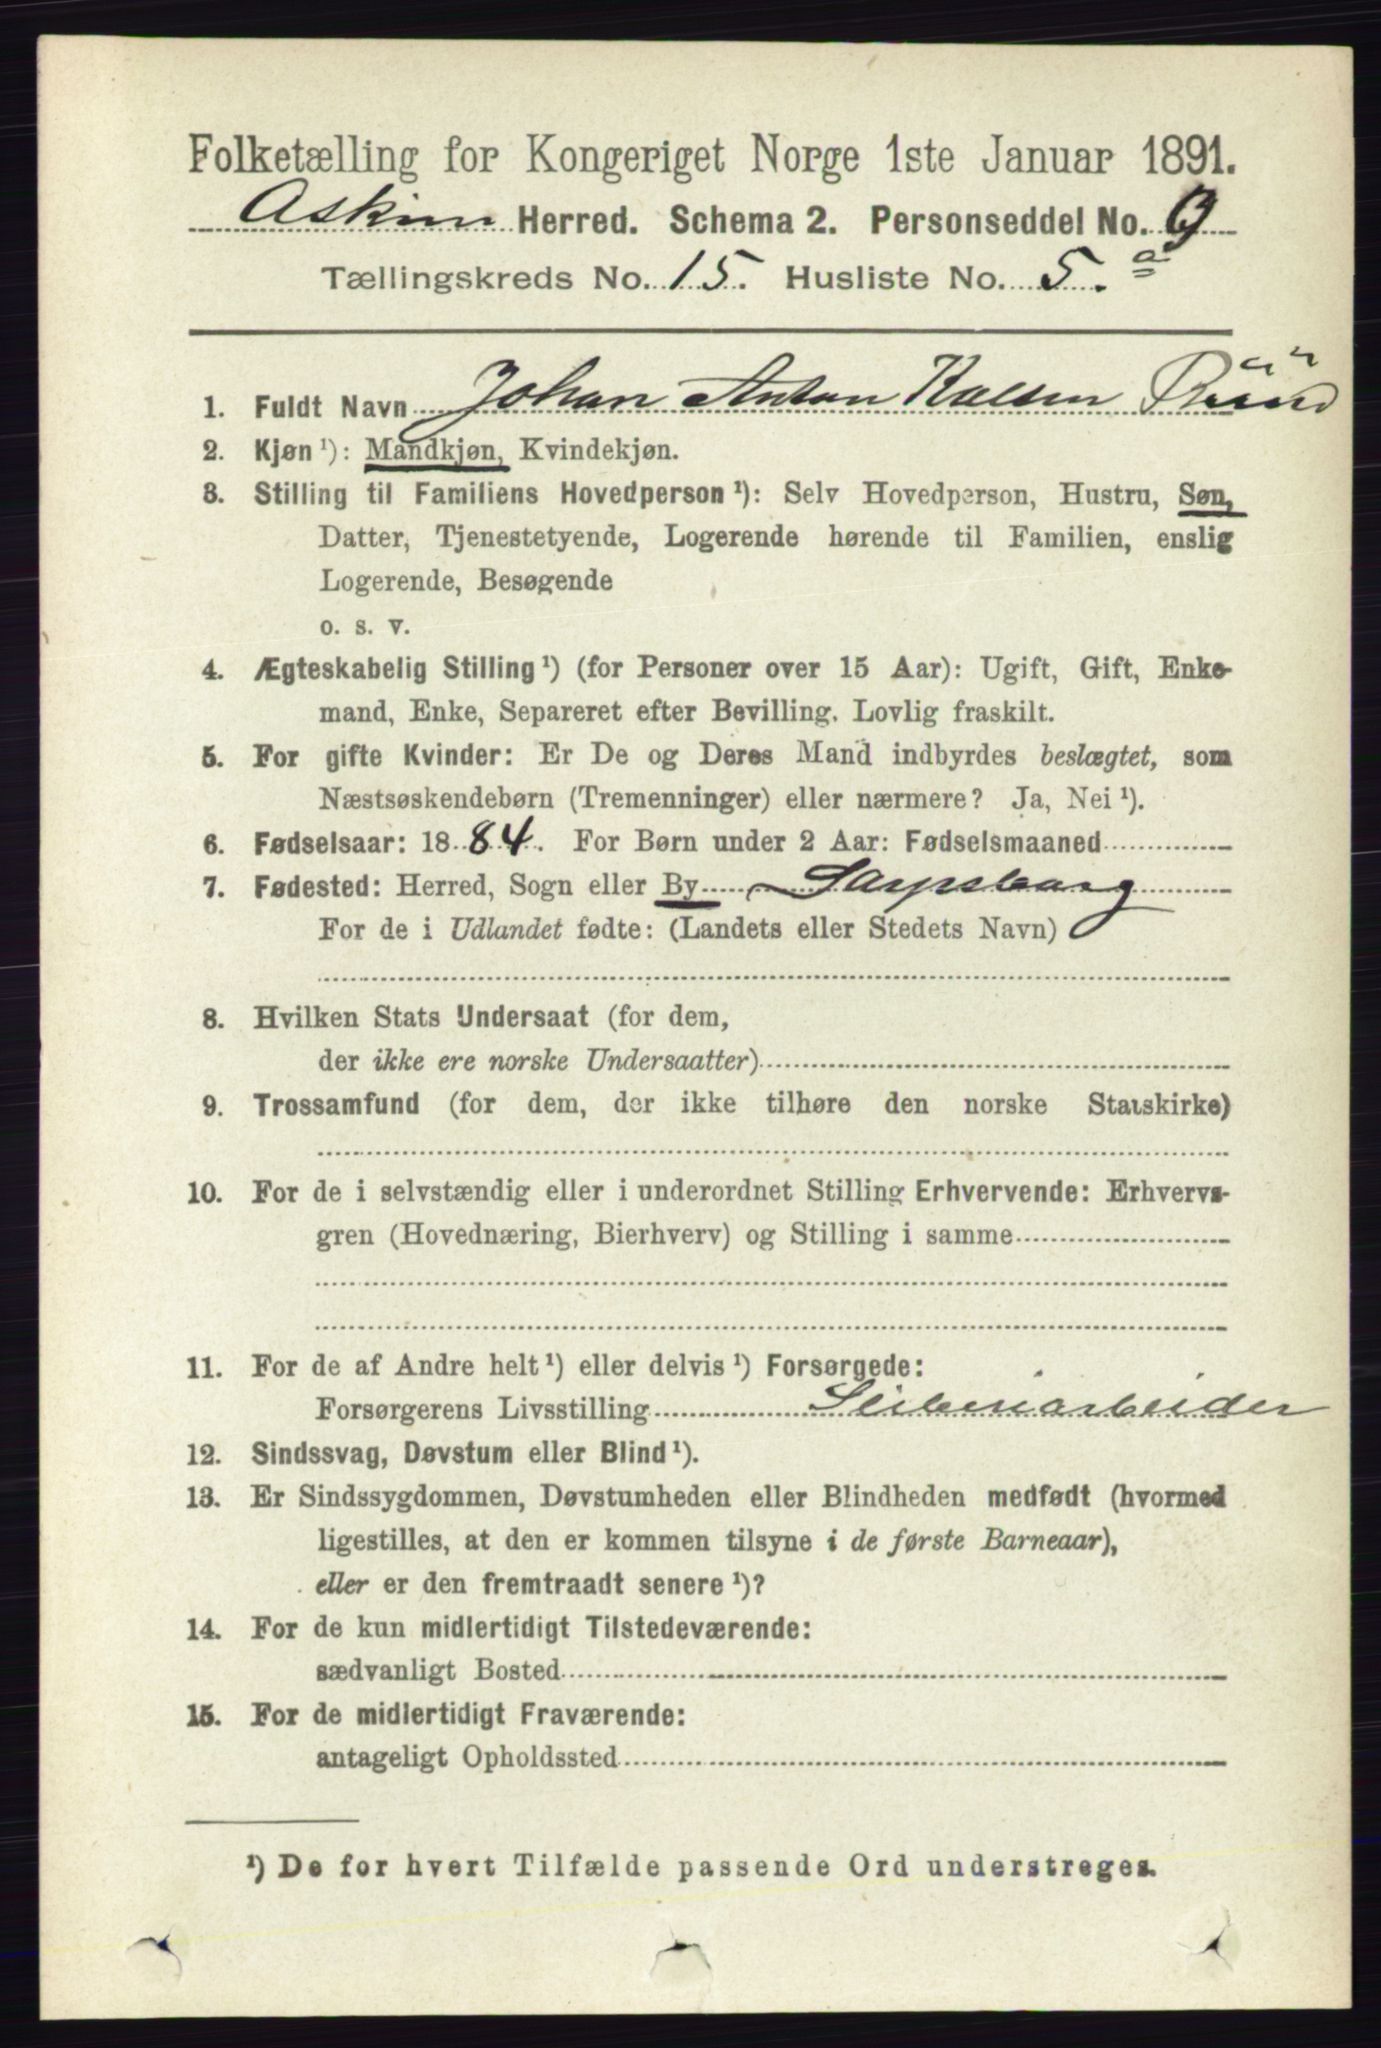 Folketælling for Kongeriget Norge 1ste Januar 1891.
Askim Herred. Schema 2. Personseddel No. 9
Tællingskreds No. 15. Husliste No. 5. a
1. Fuldt Navn Johan Anton
2. Kjøn ¹): Mandkjøn, Kvindekjøn.
3. Stilling til Familiens Hovedperson ¹): Selv Hovedperson, Hustru, Søn,
Datter, Tjenestetyende, Logerende hørende til Familien, enslig
Logerende, Besøgende
o. s. v.
4. Ægteskabelig Stilling ¹) (for Personer over 15 Aar): Ugift, Gift, Enke-
mand, Enke, Separeret efter Bevilling. Lovlig fraskilt.
5. For gifte Kvinder: Er De og Deres Mand indbyrdes beslægtet, som
Næstsøskendebørn (Tremenninger) eller nærmere? Ja, Nei ¹).
6. Fødselsaar: 1884. For Børn under 2 Aar: Fødselsmaaned
7. Fødested: Herred, Sogn eller By Sarpsborg
For de i Udlandet fødte: (Landets eller Stedets Navn)
8. Hvilken Stats Undersaat (for dem,
der ikke ere norske Undersaatter)
9. Trossamfund (for dem, der ikke tilhøre den norske Statskirke)
10. For de i selvstændig eller i underordnet Stilling Erhvervende: Erhvervs-
gren (Hovednæring, Bierhverv) og Stilling i samme
11. For de af Andre helt ¹) eller delvis ¹) Forsørgede:
Forsørgerens Livsstilling Sliberiarbeider
12. Sindssvag, Døvstum eller Blind ¹).
13. Er Sindssygdommen, Døvstumheden eller Blindheden medfødt (hvormed
ligestilles, at den er kommen tilsyne i de første Barneaar),
eller er den fremtraadt senere ¹)?
14. For de kun midlertidigt Tilstedeværende:
sædvanligt Bosted
15. For de midlertidigt Fraværende:
antageligt Opholdssted
¹) De for hvert Tilfælde passende Ord understreges.